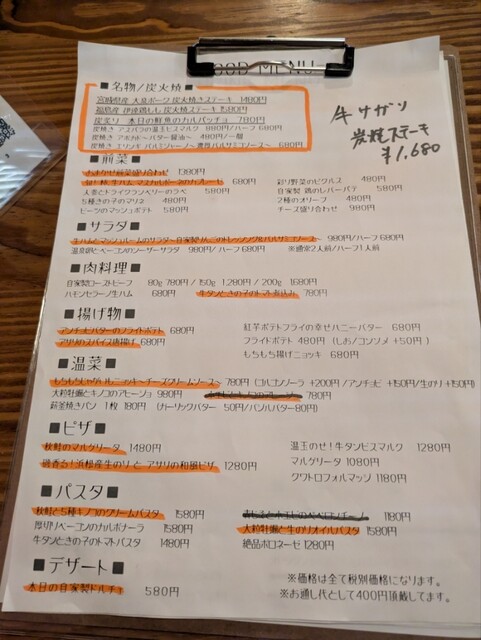 FOOD MENU
■名物/炭火焼■
宮崎県産 大島ポーク 炭火焼きステーキ 1480円
福島産 伊達鶏もも 炭火焼ステーキ 1580円
炭炙り 本日の鮮魚のカルパッチョ 780円
炭焼き アスパラの温玉ビスマルク 880円/ハーフ 680円
炭焼き アボカド～バター醤油～ 480円/一個
炭焼き エリンギ パルミハーノ～濃厚バルサミコソース～ 680円
牛サガリ
炭焼ステーキ
¥1,680
■前菜■
おまかせ前菜盛り合わせ 1380円
680円
人参とドライクランベリーのラペ 580円
5種きの子のマリネ 480円
ビーツのマッシュポテト 580円
彩り野菜のピクルス 480円
自家製 鶏のレバーパテ 580円
2種のオリーブ 480円
チーズ盛り合わせ 980円
■サラダ■
生ハムとマッシュルームのサラダ～自家製りんごのドレッシング&バルサミコソース～ 980円/ハーフ 680円
温泉卵とベーコンのシーザーサラダ 980円/ハーフ 680円 ※通常2人前/ハーフ1人前
■肉料理■
自家製ローストビーフ 80g 780円 / 150g 1,280円 / 200g 1,680円
ハモンセラーノ生ハム 680円
牛タンときの子のトマト煮込み 780円
■揚げ物■
アンチョビバターのフライドポテト 680円
アサリのスパイス唐揚げ 680円
紅芋ポテトフライの幸せハニーバター 680円
フライドポテト 480円 (しお/コンソメ +50円)
もちもち揚げニョッキ 680円
■温菜■
もちもちじゃがいもニョッキ～チーズクリームソース～ 780円 (ゴルゴンゾーラ +200円/アンチョビ +150円/生のり +150円)
大粒牡蠣とキノコのアヒージョ 980円
780円
薪釜焼きパン 1枚 180円 (ガーリックバター 50円/ハニルバター80円)
■ピザ■
秋鮭のマルゲリータ 1480円
磯香る!浜松産生のりとアサリの和風ピザ 1280円
温玉のせ!牛タンビスマルク 1280円
マルゲリータ 1080円
クワトロフォルマッジ 1180円
■パスタ■
秋鮭と5種キノコのクリームパスタ 1580円
厚切りベーコンのカルボナーラ 1580円
牛タンときの子のトマトパスタ 1480円
1180円
大粒牡蠣と生のりオイルパスタ 1580円
絶品ボロネーゼ 1280円
■デザート■
本日の自家製ドルチェ 580円
※価格は全て税別価格になります。
※お通し代として400円頂戴してます。